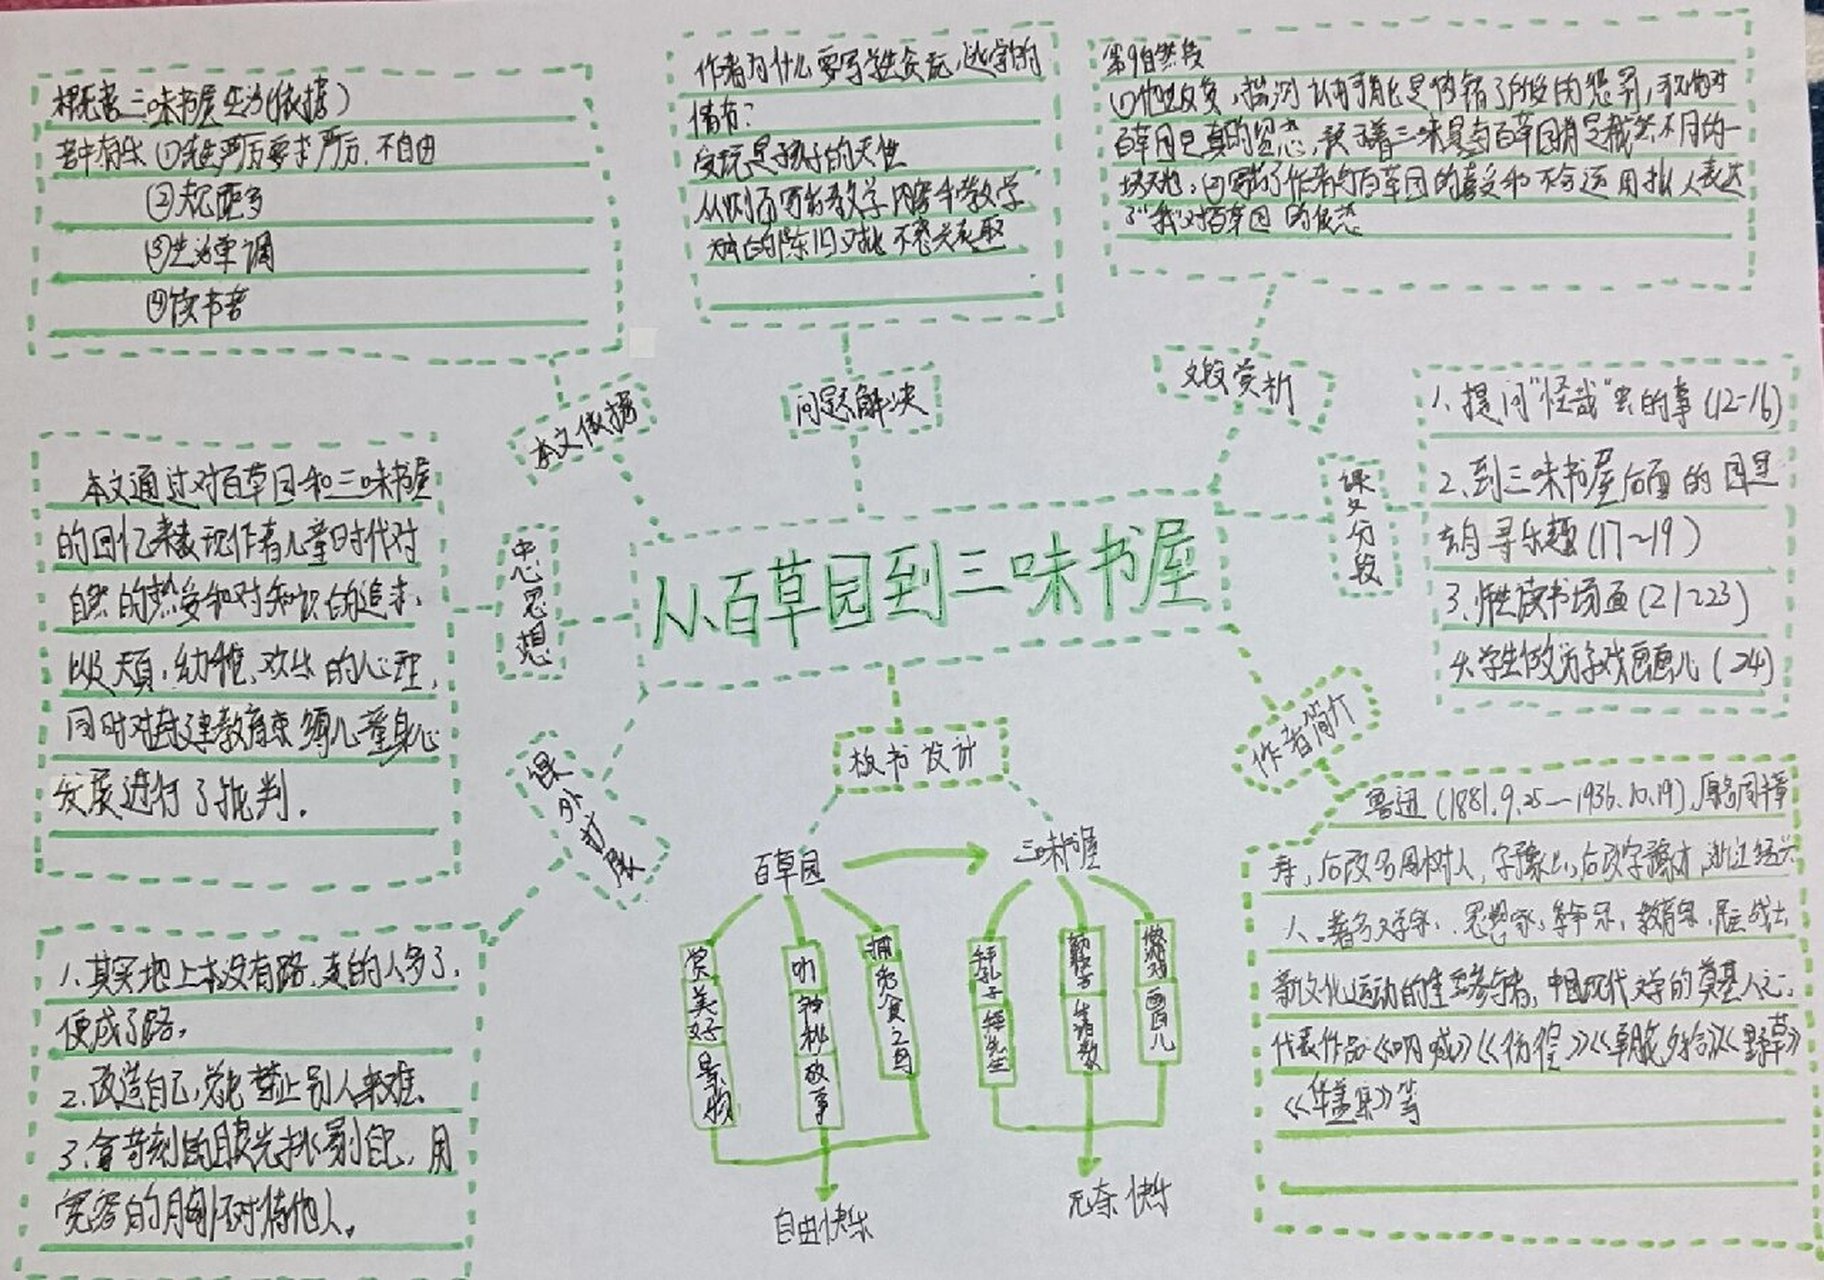 概括三味书屋生活(依据)
苦中有乐 ①先生严厉要求严厉、不自由
②规距多
③生活单调
④读书苦
作者为什么要写学生贪玩,逃学的
情节?
爱玩是孩子的天性
从侧面写出教学内容和教学
的陈旧对此不感兴趣
第9自然段
(1)他反复,猜测 认可能是做错了的惩罚,可见他对
百草园的留恋,三味是与百草园截然不同的一
块天地,(2)写出了作者对百草园的喜爱和不舍运用拟人表达
了"我"对百草园的依恋
本文依据
问题解决
文段赏析
1、提问"怪哉"虫的事(12-16)
2、到三味书屋后面的园里
去自寻乐趣(17~19)
3、师生读书场面(21~23)
4、学生做游戏画画儿(24)
课文分段
本文通过对百草园和三味书屋
的回忆来表现作者儿童时代对
自然的热爱和对知识的追求,
以及天真,幼稚、欢乐的心理,
同时对封建教育束缚儿童身心
发展进行了批判.
中心思想
从百草园到三味书屋
课外扩展
板书设计
作者简介
鲁迅(1881.9.25—1936.10.19),原名周樟
寿,后改名周树人,字豫山,后改字豫才,浙江绍兴
人.著名文学家、思想家,革命家,教育家,民主战士
新文化运动的重要参与者,中国现代文学的奠基人之一,
代表作品《呐喊》《彷徨》《朝花夕拾》《野草》
《华盖集》等
百草园
三味书屋
赏美好景物
听神秘故事
捕觅食之鸟
拜孔子拜先生
做游戏画画儿
自由快乐
无奈快乐
1、其实地上本没有路,走的人多了,
便成了路。
2、改造自己,总比禁止别人来难、
3、拿苛刻的目光挑剔自己,用
宽容的胸怀对待他人。